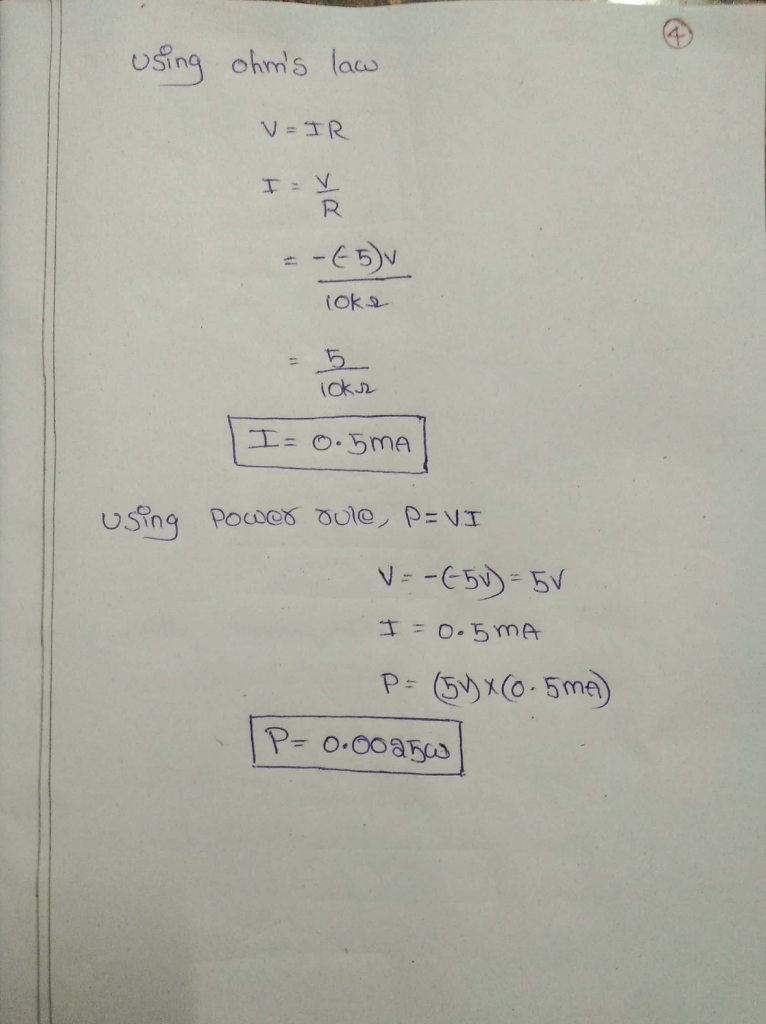 4
Using ohm's law
V = IR
I = V/R
= -(-5)V / 10kΩ
= 5 / 10kΩ
I = 0.5mA
Using power rule, P=VI
V = -(-5V) = 5V
I = 0.5mA
P = (5V)x(0.5mA)
P = 0.0025W